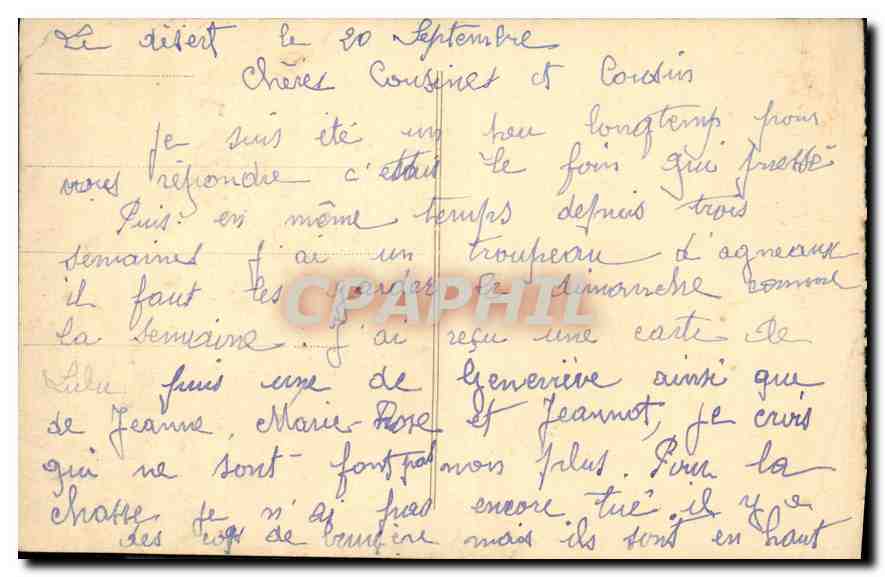 Le désert le 20 Septembre
Chères Cousines et Cousin
Je suis été un peu longtemp pour
vous répondre c'ettais le foin qui pressé
Puis en même temps depuis trois
semaines j'ai un troupeau d'agneaux
il faut les garder le dimanche comme
la semaine. J'ai reçu une carte de
Lulu puis une de Geneviève ainsi que
de Jeanne, Marie-Rose et Jeannot, je crois
qui ne sont font pas non plus. Pour la
chasse je n'ai pas encore tué. il y a
des coqs de bruyère mais ils sont en haut
CPAPHIL